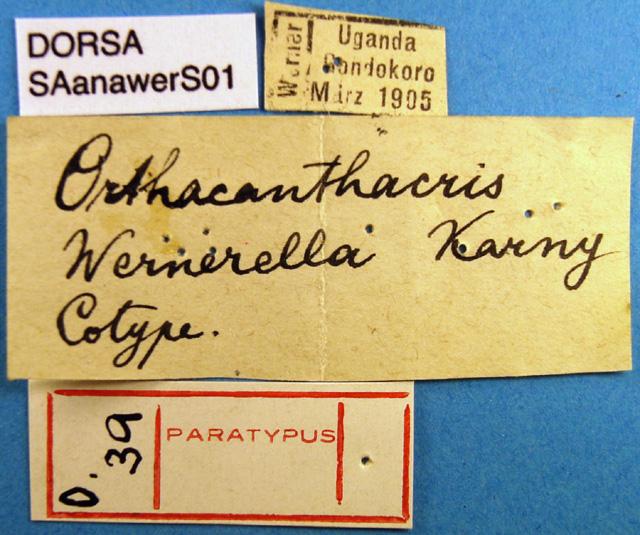 DORSA
SAanawerS01
Werner
Uganda
Gondokoro
März 1905
Orthacanthacris
Wernerella Karny
Cotype.
O. 39
PARATYPUS